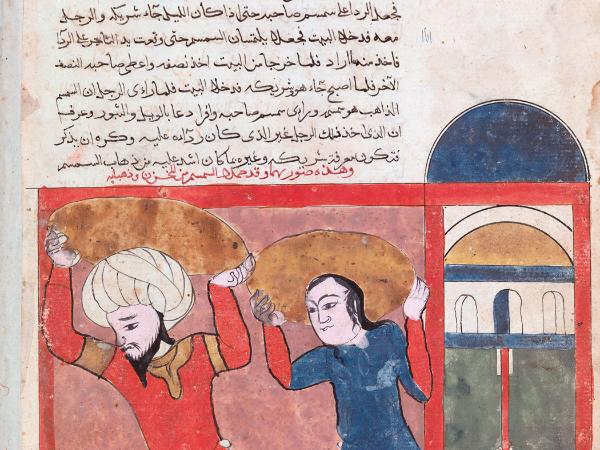 فجعل الردا على سمسم صاحبه حتى اذا كان الليل جاء شريكه والرجل
معه فدخلا البيت فجعلا يلتمسان السمسم حتى وقعت يد التاجر على الردا
فاخذ منه ما اراد فلما خرجا من البيت اخذ نصفه واعطى صاحبه النصف
الآخر فلما اصبح جاء هو شريكه فدخلا البيت فلما راى الرجل ان السمسم
الذاهب هو سمسمه وراى سمسم صاحبه وافرا دعا بالويل والثبور وعرف
ان الذى اخذ الرجل غير الذى كان رداه عليه وكره ان يذكر
فتكون معرفة شريكه وغيره بما كان اشد عليه من ذهاب السمسم
وهذه صورتهما وقد حملا السمسم من المخزن وذهبا به